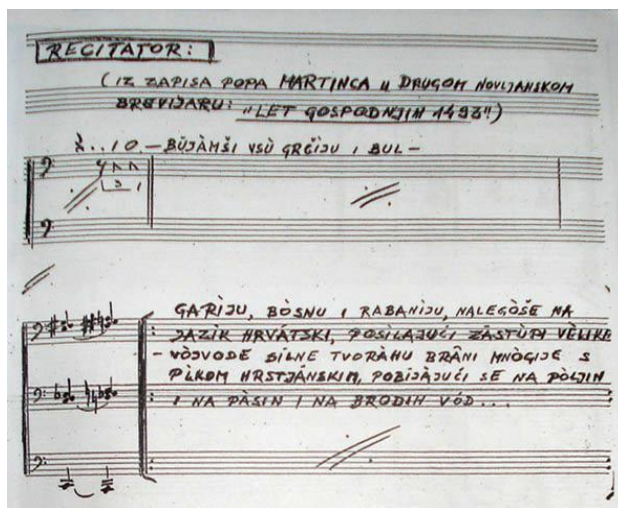 RECITATOR:
(IZ ZAPISA POPA MARTINCA U DRUGOM NOVLJANSKOM
BREVIJARU: "LET GOSPODNJIH 1493")
BÙJÀMŠI VSÙ GRČÌJU I BUL-
GARÌJU, BÒSNU I RABANÌJU, NALEGÒŠE NA
JAZÌK HRVÁTSKI, POSÌLAJUĆI ZÁSTÙPI VÈLIKE
- VÒJVODE SÌLNE TVORÀHU BRÂNI MNÒGIJE S
PÙLKOM HRSTJÁNSKIM, POBÌJÀJUĆI SE NA PÒLJIH
I NA PÀSIH I NA BRODIH VÓD...